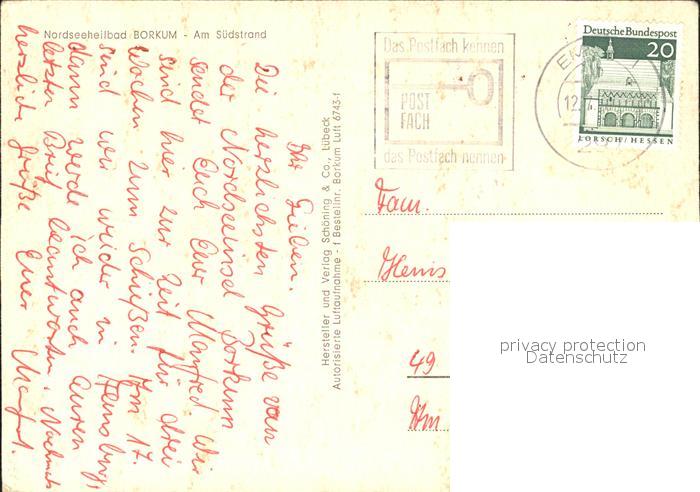 Nordseeheilbad BORKUM - Am Südstrand
Ihr Lieben.
Die herzlichsten Grüße von
der Nordseeinsel Borkum
sendet Euch Euer Manfred. Wir
sind hier zur Zeit für drei
Wochen zum Schießen. Am 17.
sind wir wieder in Flensburg,
dann werde ich auch Euren
letzten Brief beantworten. Nochmals
herzliche Grüße Euer Manfred.
Hersteller und Verlag Schöning & Co., Lübeck
Autorisierte Luftaufnahme - 1 Bestellnr. Borkum Luft 6743-f
Das Postfach kennen
POST
FACH
das Postfach nennen
EM
12.
Deutsche Bundespost
20
LORSCH/HESSEN
Fam.
49
privacy protection
Datenschutz